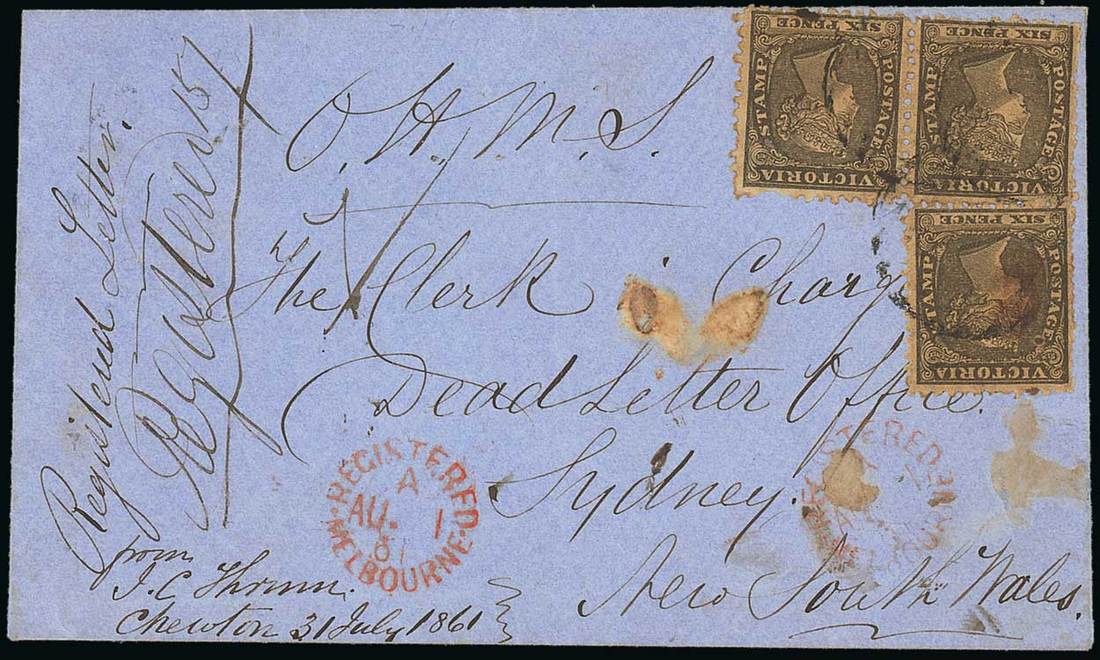 O. H. M. S.
The Clerk Charge
Dead Letter Office.
Sydney.
New South Wales.
Registered Letter.
Registered 157
from
J. C.
Chewton 31 July 1861
REGISTERED
A
AU. 1
61
MELBOURNE
REGISTERED
MELBOURNE
STAMP
SIX PENCE
POSTAGE
VICTORIA
STAMP
SIX PENCE
POSTAGE
VICTORIA
STAMP
SIX PENCE
POSTAGE
VICTORIA